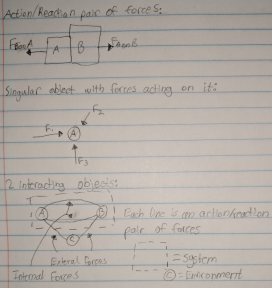 Action/Reaction pair of forces:
FBonA A B FAonB
Singular object with forces acting on it:
F2
F1 A
F3
2 interacting objects:
A B Each line is an action/reaction
pair of forces
C
External forces = System
Internal Forces C = Environment